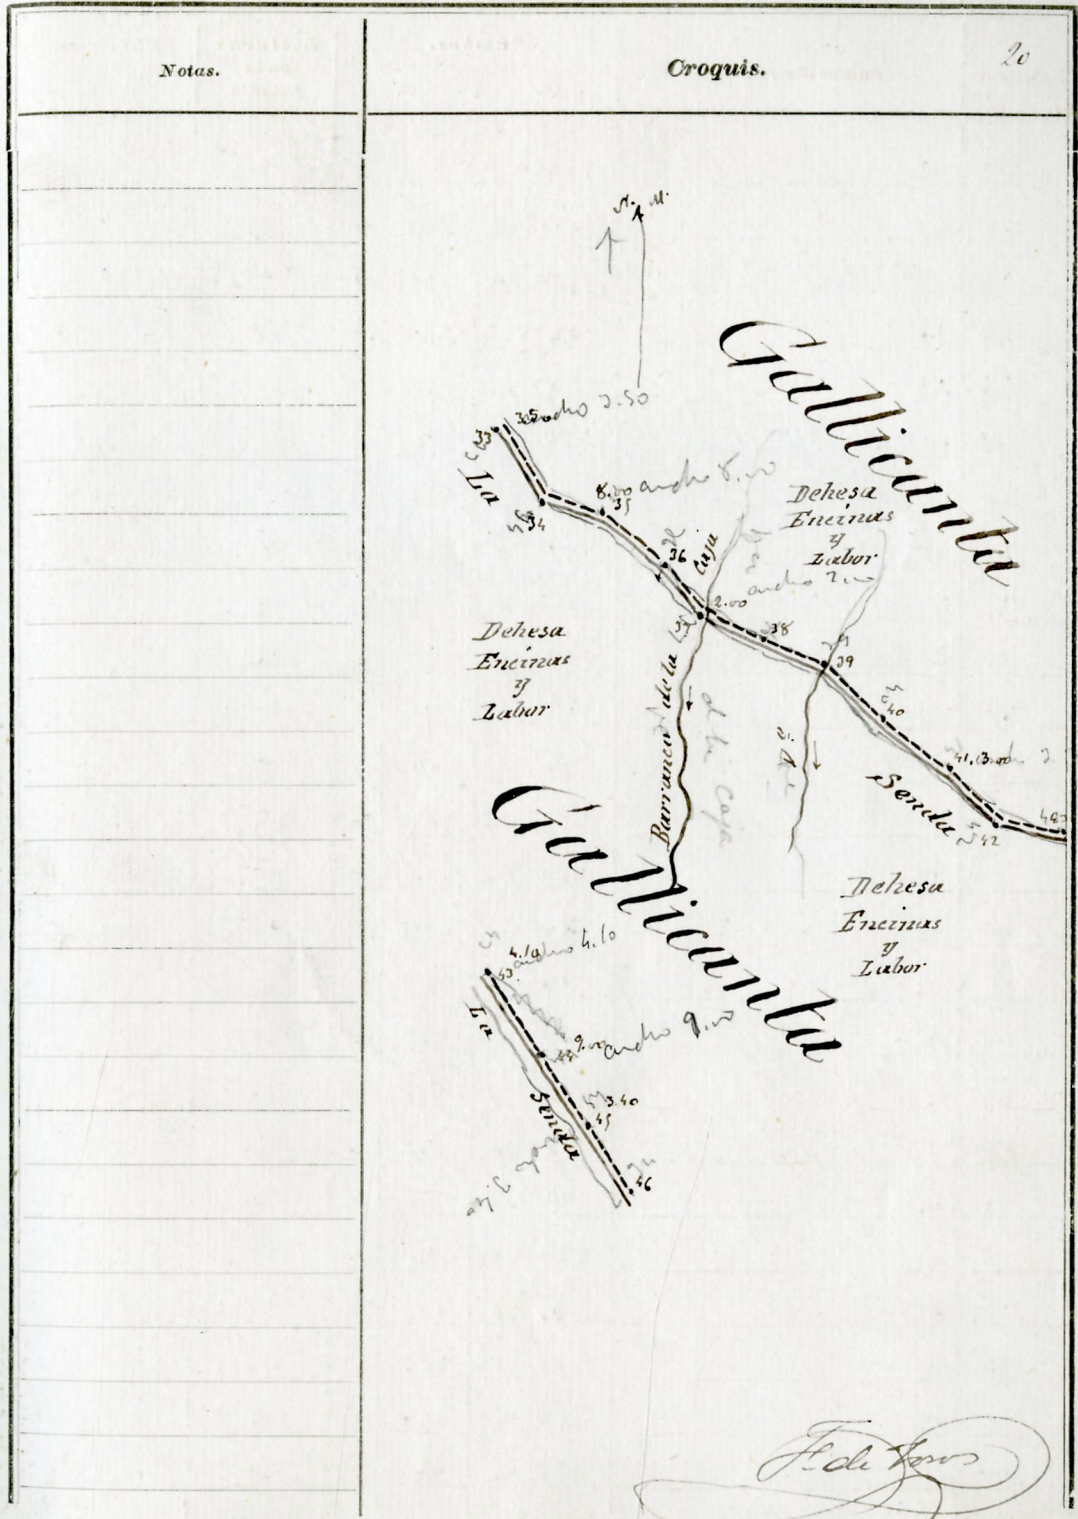 Notas.
Croquis.
20
N. M.
Gallicanta
33
ancho 2.50
La
34
8.00
35
ancho 8.00
Dehesa
Encinas
y
Labor
36
Caja
ancho 2.00
2.00
38
39
Dehesa
Encinas
y
Labor
Barranco de la
de la Caja
40
41
3.00
Senda
42
43
Gallicanta
Dehesa
Encinas
y
Labor
4.10
ancho 4.10
43
La
44
9.00
ancho 9.00
3.40
45
Senda
46
F. de